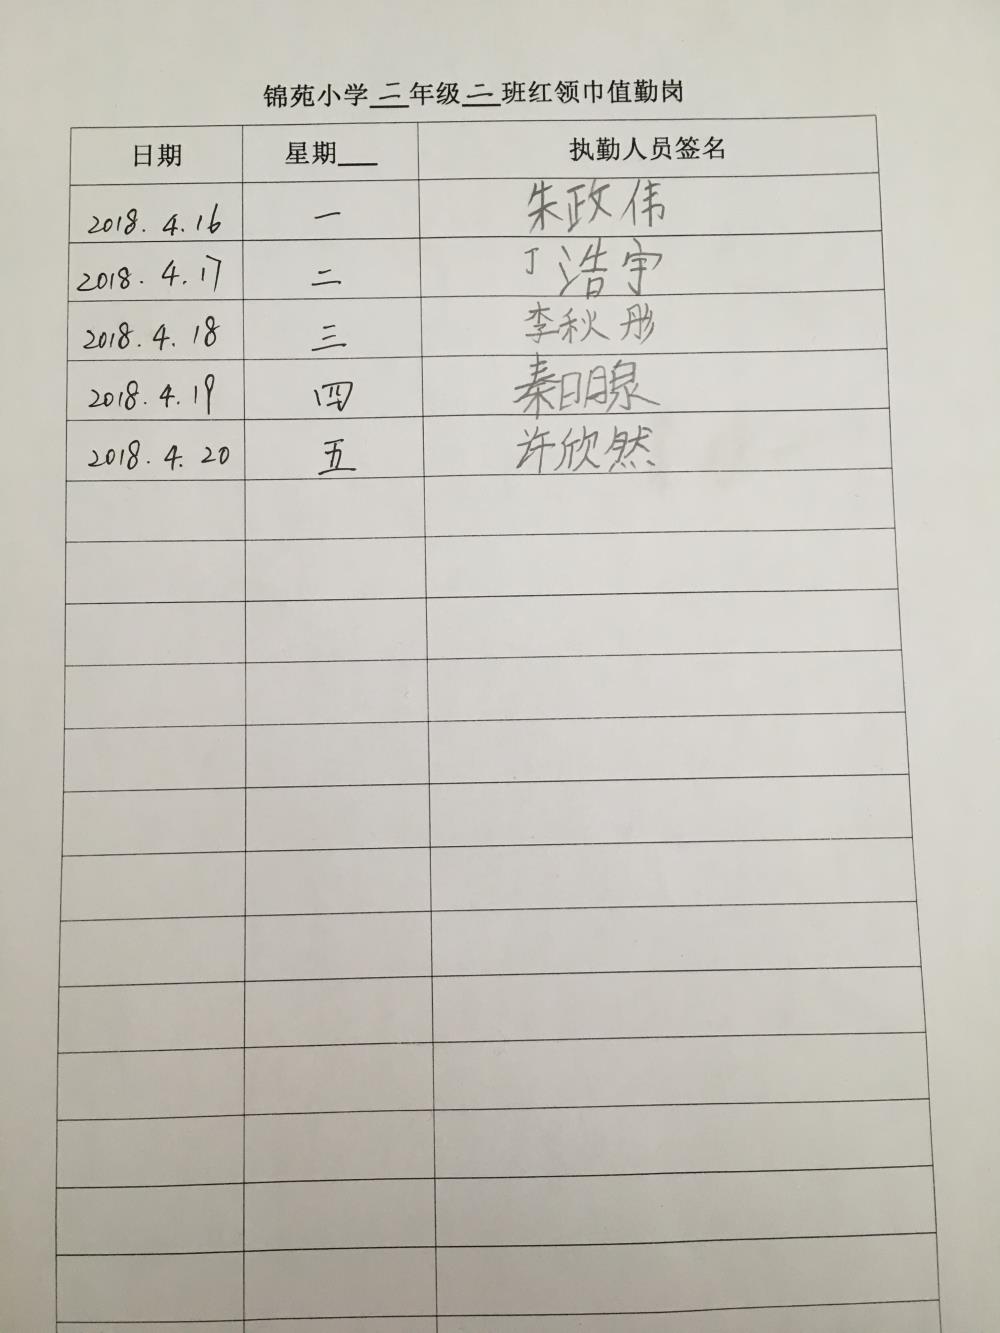 锦苑小学二年级二班红领巾值勤岗
日期 星期 执勤人员签名
2018.4.16 一 朱政伟
2018.4.17 二 丁浩宇
2018.4.18 三 李秋彤
2018.4.19 四 秦明泉
2018.4.20 五 许欣然